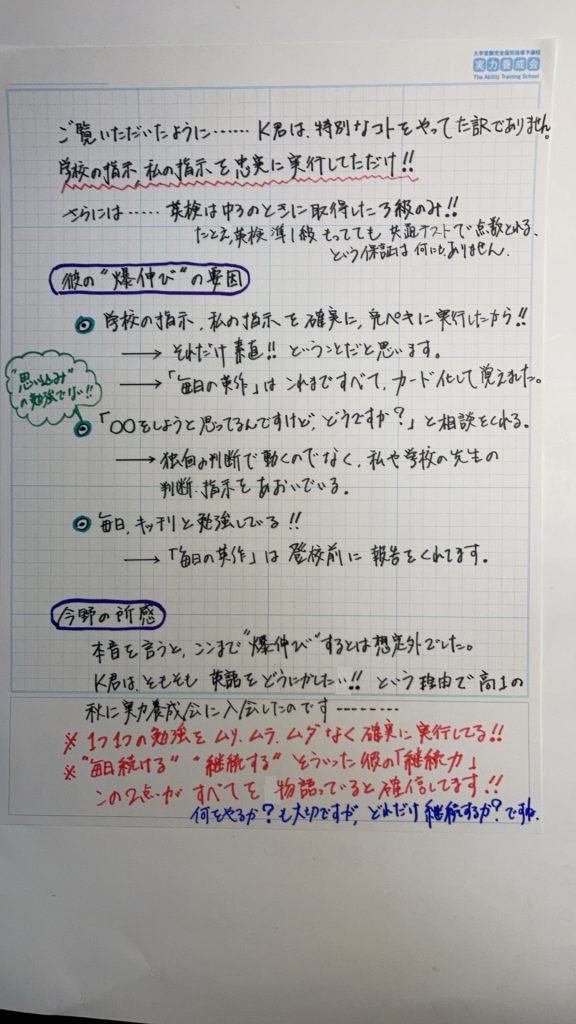 大学受験完全個別指導予備校
実力養成会
The Ability Training School
ご覧いただいたように……K君は、特別なコトをやってた訳でありません。
学校の指示、私の指示を忠実に実行してただけ!!
さらには……英検は中3のときに取得した3級のみ!!
たとえ、英検準1級もってても共通テストで点数とれる、
という保証は何にもありません。
彼の"爆伸び"の要因
学校の指示、私の指示を確実に、完ペキに実行したから!!
→それだけ素直!!ということだと思います。
→「毎日の英作」はこれまですべて、カード化して覚えました。
"思い込み"
の勉強でない!!
「〇〇をしようと思ってるんですけど、どうですか?」と相談をくれる。
→独自の判断で動くのでなく、私や学校の先生の
判断、指示をあおいでいる。
毎日、キッチリと勉強している!!
→「毎日の英作」は登校前に報告をくれてます。
今野の所感
本音を言うと、ここまで"爆伸び"するとは想定外でした。
K君は、そもそも英語をどうにかしたい!!という理由で高1の
秋に実力養成会に入会したのです--------
※1つ1つの勉強をムリ、ムラ、ムダなく確実に実行してる!!
※"毎日続ける""継続する"そういった彼の「継続力」
この2点がすべてを物語っていると確信してます!!
何をやるか?も大切ですが、どれだけ継続するか?ですね。